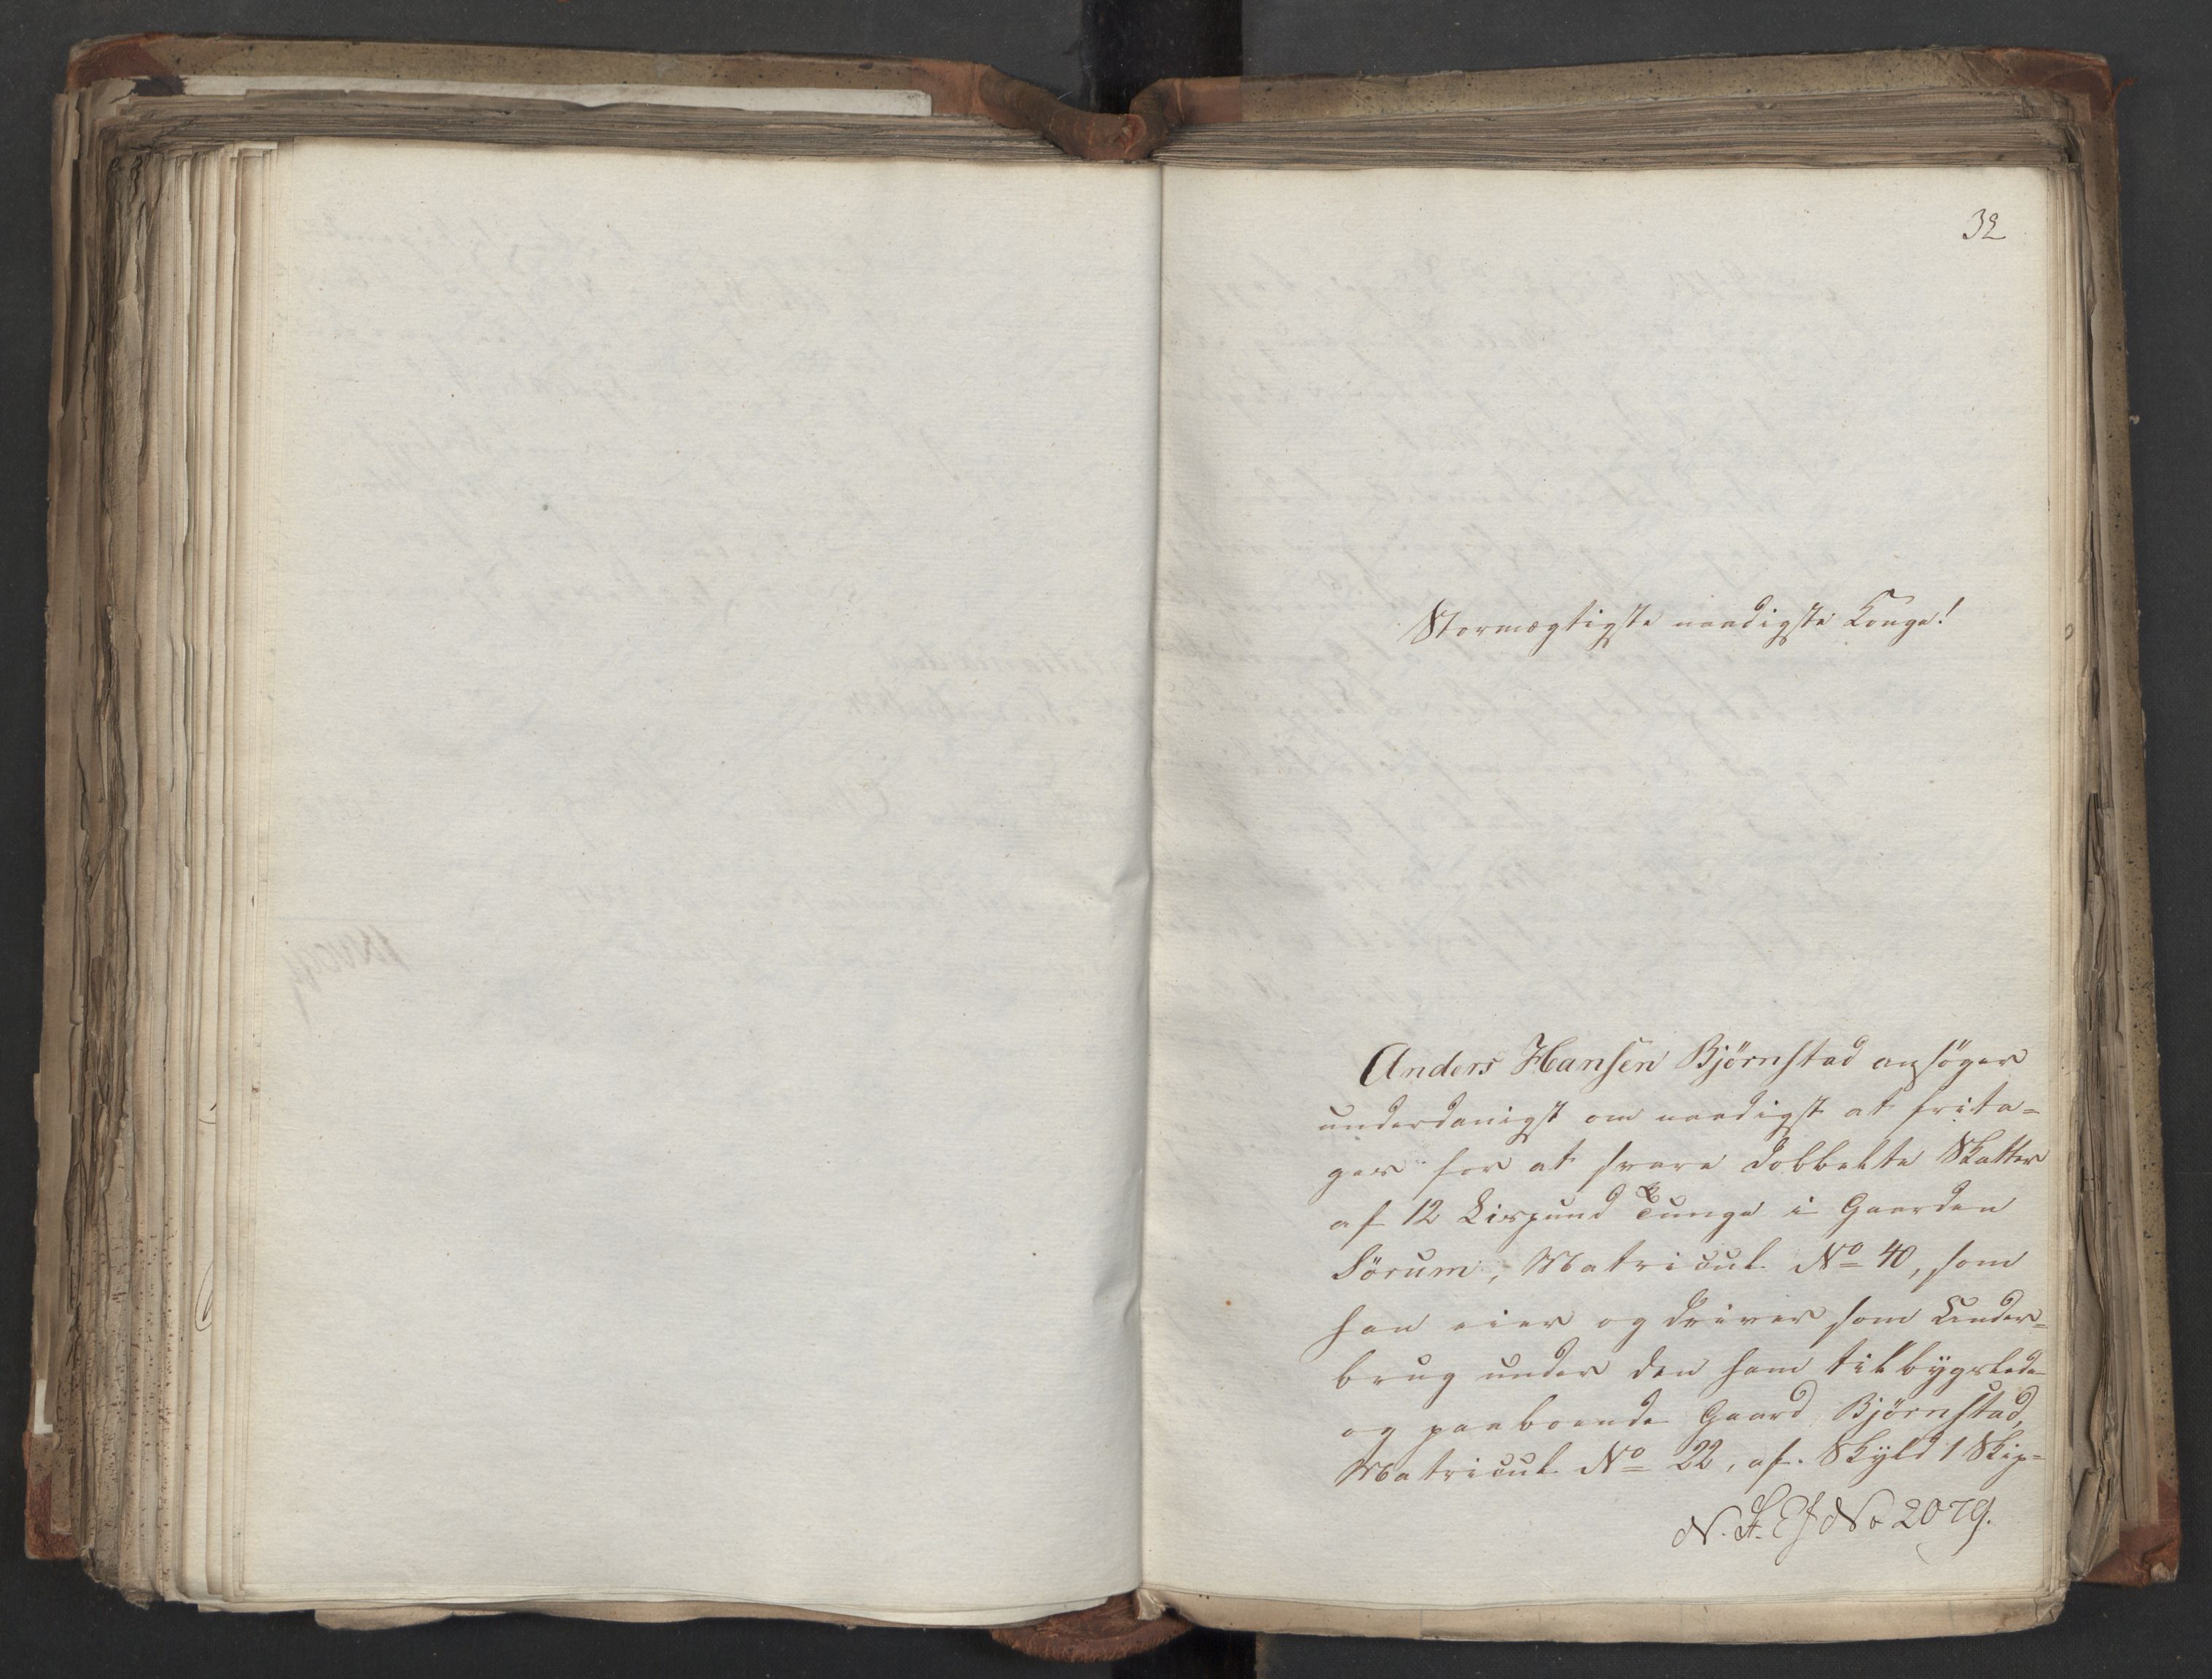 32
Stormægtigste naadigste Konge!
Anders Hansen Bjørnstad ansøger
underdanigst om naadigst at frita-
ges for at svare dobbelte Skatter
af 12 Lispund Tunge i Gaarden
Sørum, Matricul No 40, som
han eier og driver som Under-
brug under den ham tilbygslede
og paaboende Gaard Bjørnstad,
Matricul No 22, af Skyld 1 Skip-
No 2079.